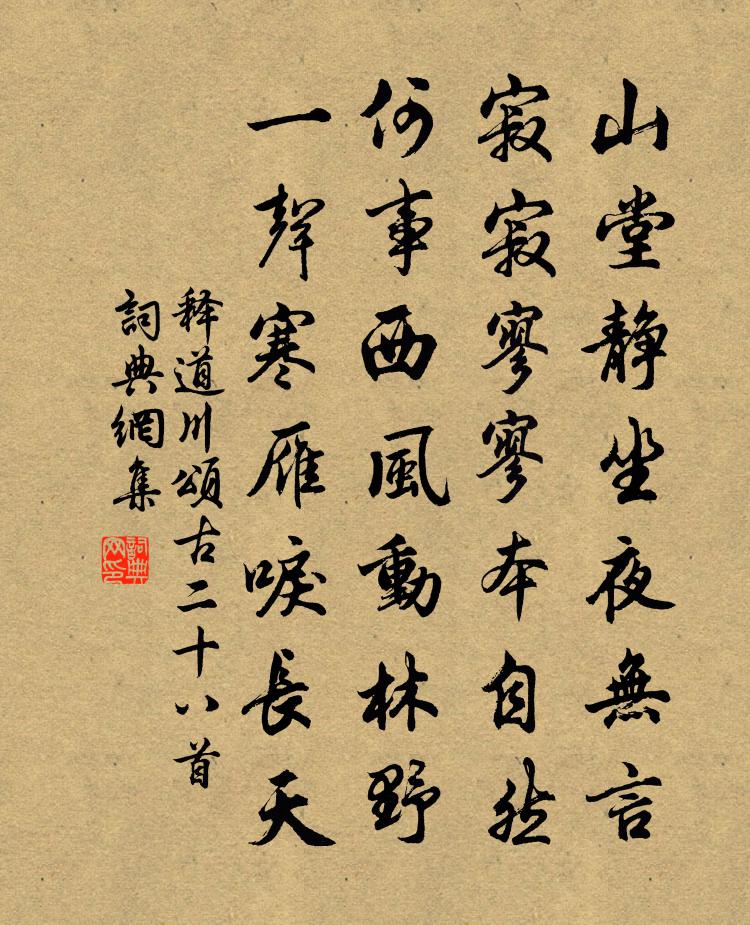 山堂靜坐夜無言
寂寂寥寥本自然
何事西風動林野
一聲寒雁唳長天
释道川頌古二十八首
詞典網集
詞典網印